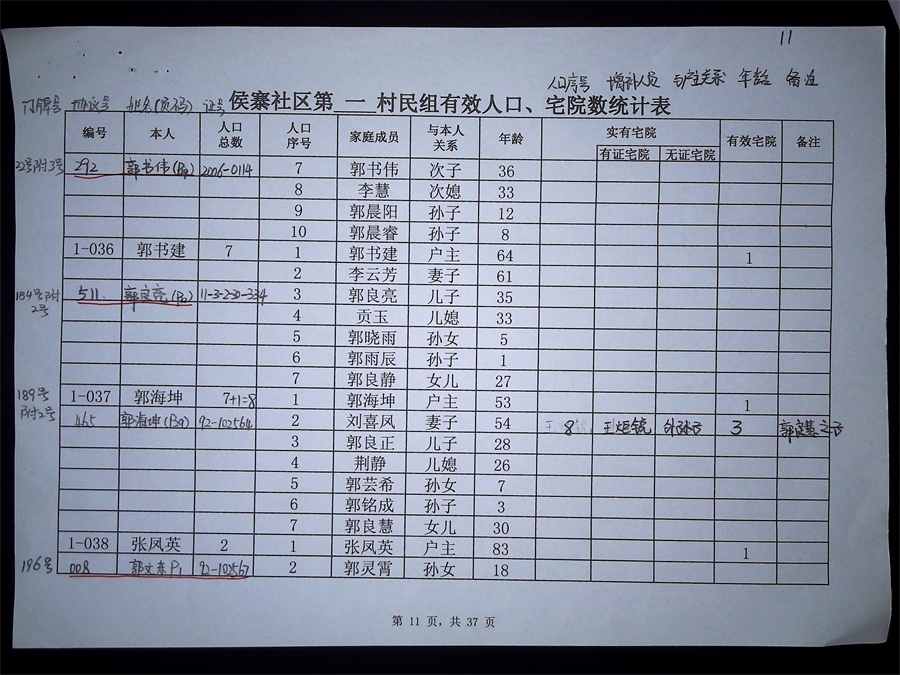 11
人口序号 增补人员 与户主关系 年龄 备注
门牌号 协议号 姓名(页码) 证号
侯寨社区第 一 村民组有效人口、宅院数统计表
编号 本人 人口总数 人口序号 家庭成员 与本人关系 年龄 实有宅院 有效宅院 备注
有证宅院 无证宅院
22号附3号 292 郭书伟(P19) 2006-0114 7 郭书伟 次子 36
8 李慧 次媳 33
9 郭晨阳 孙子 12
10 郭晨睿 孙子 8
1-036 郭书建 7 1 郭书建 户主 64 1
2 李云芳 妻子 61
184号附2号 511 郭良亮 11-3-230-334 3 郭良亮 儿子 35
4 贡玉 儿媳 33
5 郭晓雨 孙女 5
6 郭雨辰 孙子 1
7 郭良静 女儿 27
189号附2号 1-037 郭海坤 7+1=8 1 郭海坤 户主 53 1
465 郭海坤 92-102564 2 刘喜凤 妻子 54 8 王炬铳 外孙子 3 郭良慧之子
3 郭良正 儿子 28
4 荆静 儿媳 26
5 郭芸希 孙女 7
6 郭铭成 孙子 3
7 郭良慧 女儿 30
1-038 张凤英 2 1 张凤英 户主 83 1
196号 008 郭文来P1 92-102567 2 郭灵霄 孙女 18
第 11 页，共 37 页